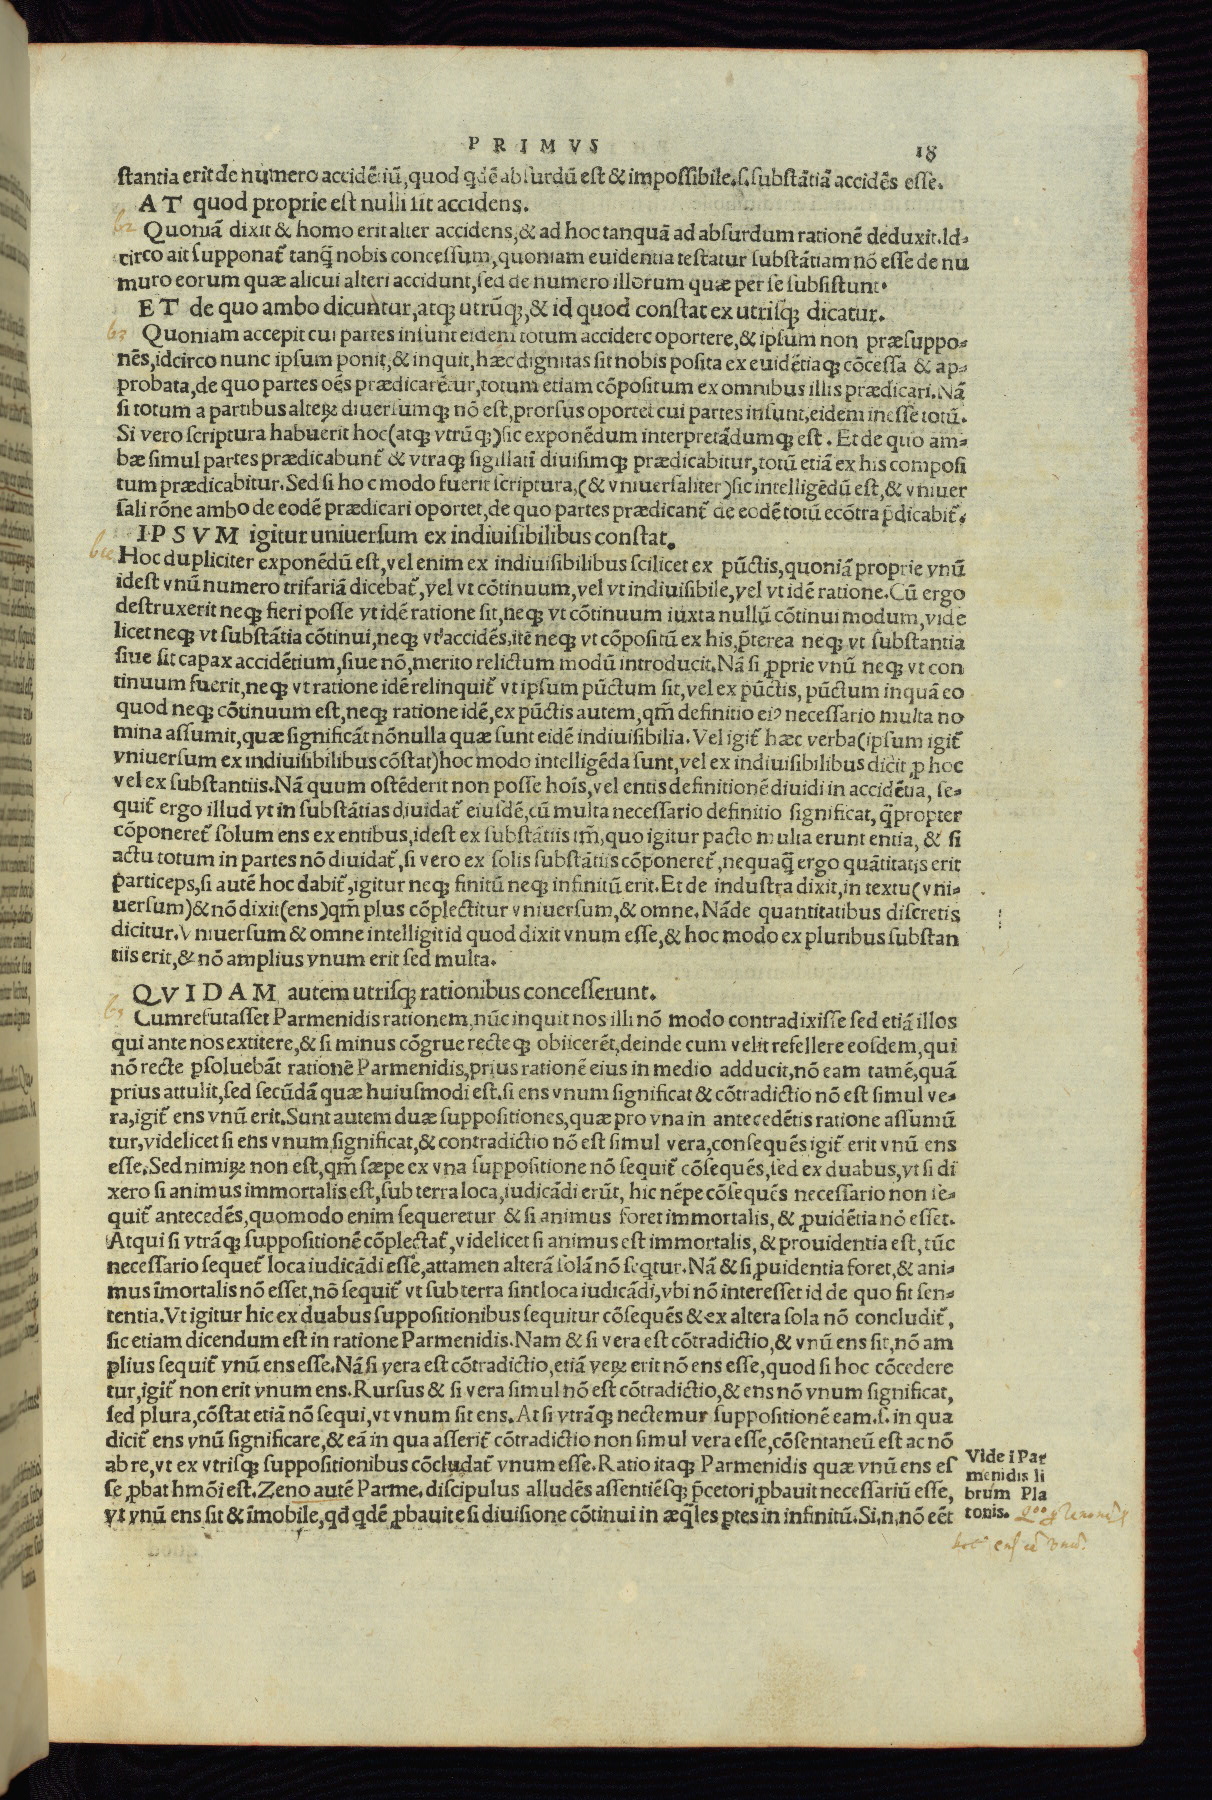 PRIMVS
18
stantia erit de numero accidẽtiũ, quod qdẽ absurdũ est & impossibile. s. substãtiã accidẽs esse.
AT quod proprie est nulli sit accidens.
Quoniã dixit & homo erit alter accidens, & ad hoc tanquã ad absurdum rationẽ deduxit. Id-
circo ait supponat᷑ tanq̃ nobis concessum, quoniam euidentia testatur substãtiam nõ esse de nu
muro eorum quæ alicui alteri accidunt, sed de numero illorum quæ per se subsistunt.
ET de quo ambo dicuntur, atq; utrũq;, & id quod constat ex utrisq; dicatur.
Quoniam accepit cui partes insunt eidem totum accidere oportere, & ipsum non præsuppo-
nẽs, idcirco nunc ipsum ponit, & inquit, hæc dignitas sit nobis posita ex euidẽtiaq; cõcessa & ap-
probata, de quo partes oẽs prædicarẽtur, totum etiam cõpositum ex omnibus illis prædicari. Nã
si totum a partibus alteꝝ diuersumq; nõ est, prorsus oportet cui partes insunt, eidem inesse totũ.
Si vero scriptura habuerit hoc (atq; vtrũq;) sic exponẽdum interpretãdumq; est. Et de quo am-
bæ simul partes prædicabunt᷑ & vtraq; sigillati diuisimq; prædicabitur, totũ etiã ex his composi
tum prædicabitur. Sed si hoc modo fuerit scriptura, (& vniuersaliter) sic intelligẽdũ est, & vniuer
sali rõne ambo de eodẽ prædicari oportet, de quo partes prædicant᷑ de eodẽ totũ ecõtra p̃dicabit᷑.
IPSVM igitur uniuersum ex indiuisibilibus constat.
Hoc dupliciter exponẽdũ est, vel enim ex indiuisibilibus scilicet ex pũctis, quoniã proprie vnũ
idest vnũ numero trifariã dicebat᷑, vel vt cõtinuum, vel vt indiuisibile, vel vt idẽ ratione. Cũ ergo
destruxerit neq; fieri posse vt idẽ ratione sit, neq; vt cõtinuum iuxta nullũ cõtinui modum, vide
licet neq; vt substãtia cõtinui, neq; vt accidẽs, itẽ neq; vt cõpositũ ex his, p̃terea neq; vt substantia
siue sit capax accidẽtium, siue nõ, merito relictum modũ introducit. Nã si ꝓprie vnũ neq; vt con
tinuum fuerit, neq; vt ratione idẽ relinquit᷑ vt ipsum pũctum sit, vel ex pũctis, pũctum inquã eo
quod neq; cõtinuum est, neq; ratione idẽ, ex pũctis autem, qm̃ definitio eiꝰ necessario multa no
mina assumit, quæ significãt nõnulla quæ sunt eidẽ indiuisibilia. Vel igit᷑ hæc verba (ipsum igit᷑
vniuersum ex indiuisibilibus cõstat) hoc modo intelligẽda sunt, vel ex indiuisibilibus dicit ꝓ hoc
vel ex substantiis. Nã quum ostẽderit non posse hoĩs, vel entis definitionẽ diuidi in accidẽtia, se-
quit᷑ ergo illud vt in substãtias diuidat᷑ eiusdẽ, cũ multa necessario definitio significat, q̃propter
cõponeret᷑ solum ens ex entibus, idest ex substãtiis tm̃, quo igitur pacto multa erunt entia, & si
actu totum in partes nõ diuidat᷑, si vero ex solis substãtiis cõponeret᷑, nequaq̃ ergo quãtitatis erit
particeps, si autẽ hoc dabit᷑, igitur neq; finitũ neq; infinitũ erit. Et de industra dixit, in textu (vni-
uersum) & nõ dixit (ens) qm̃ plus cõplectitur vniuersum, & omne. Nãde quantitatibus discretis
dicitur. Vniuersum & omne intelligit id quod dixit vnum esse, & hoc modo ex pluribus substan
tiis erit, & nõ amplius vnum erit sed multa.
QVIDAM autem utrisq; rationibus concesserunt.
Cum refutasset Parmenidis rationem, nũc inquit nos illi nõ modo contradixisse sed etiã illos
qui ante nos extitere, & si minus cõgrue recteq; obiicerẽt, deinde cum velit refellere eosdem, qui
nõ recte ꝑsoluebãt rationẽ Parmenidis, prius rationẽ eius in medio adducit, nõ eam tamẽ, quã
prius attulit, sed secũdã quæ huiusmodi est. si ens vnum significat & cõtradictio nõ est simul ve-
ra, igit᷑ ens vnũ erit. Sunt autem duæ suppositiones, quæ pro vna in antecedẽtis ratione assumũ
tur, videlicet si ens vnum significat, & contradictio nõ est simul vera, consequẽs igit᷑ erit vnũ ens
esse. Sed nimiꝝ non est, qm̃ sæpe ex vna suppositione nõ sequit᷑ cõsequẽs, sed ex duabus, vt si di
xero si animus immortalis est, sub terra loca, iudicãdi erũt, hic nẽpe cõsequẽs necessario non se-
quit᷑ antecedẽs, quomodo enim sequeretur & si animus foret immortalis, & ꝓuidẽtia nõ esset.
Atqui si vtrãq; suppositionẽ cõplectat᷑, videlicet si animus est immortalis, & prouidentia est, tũc
necessario sequet᷑ loca iudicãdi esse, attamen alterã solã nõ seqtur. Nã & si ꝓuidentia foret, & ani-
mus ĩmortalis nõ esset, nõ sequit᷑ vt sub terra sint loca iudicãdi, vbi nõ interesset id de quo fit sen-
tentia. Vt igitur hic ex duabus suppositionibus sequitur cõsequẽs & ex altera sola nõ concludit᷑,
sic etiam dicendum est in ratione Parmenidis. Nam & si vera est cõtradictio, & vnũ ens sit, nõ am
plius sequit᷑ vnũ ens esse. Nã si vera est cõtradictio, etiã veꝝ erit nõ ens esse, quod si hoc cõcedere
tur, igit᷑ non erit vnum ens. Rursus & si vera simul nõ est cõtradictio, & ens nõ vnum significat,
sed plura, cõstat etiã nõ sequi, vt vnum sit ens. At si vtrãq; nectemur suppositionẽ eam. s. in qua
dicit᷑ ens vnũ significare, & eã in qua asserit᷑ cõtradictio non simul vera esse, cõsentaneũ est ac nõ
ab re, vt ex vtrisq; suppositionibus cõcludat᷑ vnum esse. Ratio itaq; Parmenidis quæ vnũ ens es
se ꝓbat hmõi est. Zeno autẽ Parme. discipulus alludẽs assentiẽsq; p̃cetori ꝓbauit necessariũ esse,
vt vnũ ens sit & ĩmobile, qđ qdẽ ꝓbauit e si diuisione cõtinui in æq̃les ptes in infinitũ. Si. n. nõ eẽt
Vide i Par
menidis li
brum Pla
tonis.